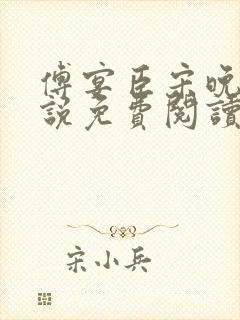 傅宴臣宋晚
說免費閱讀
宋小兵